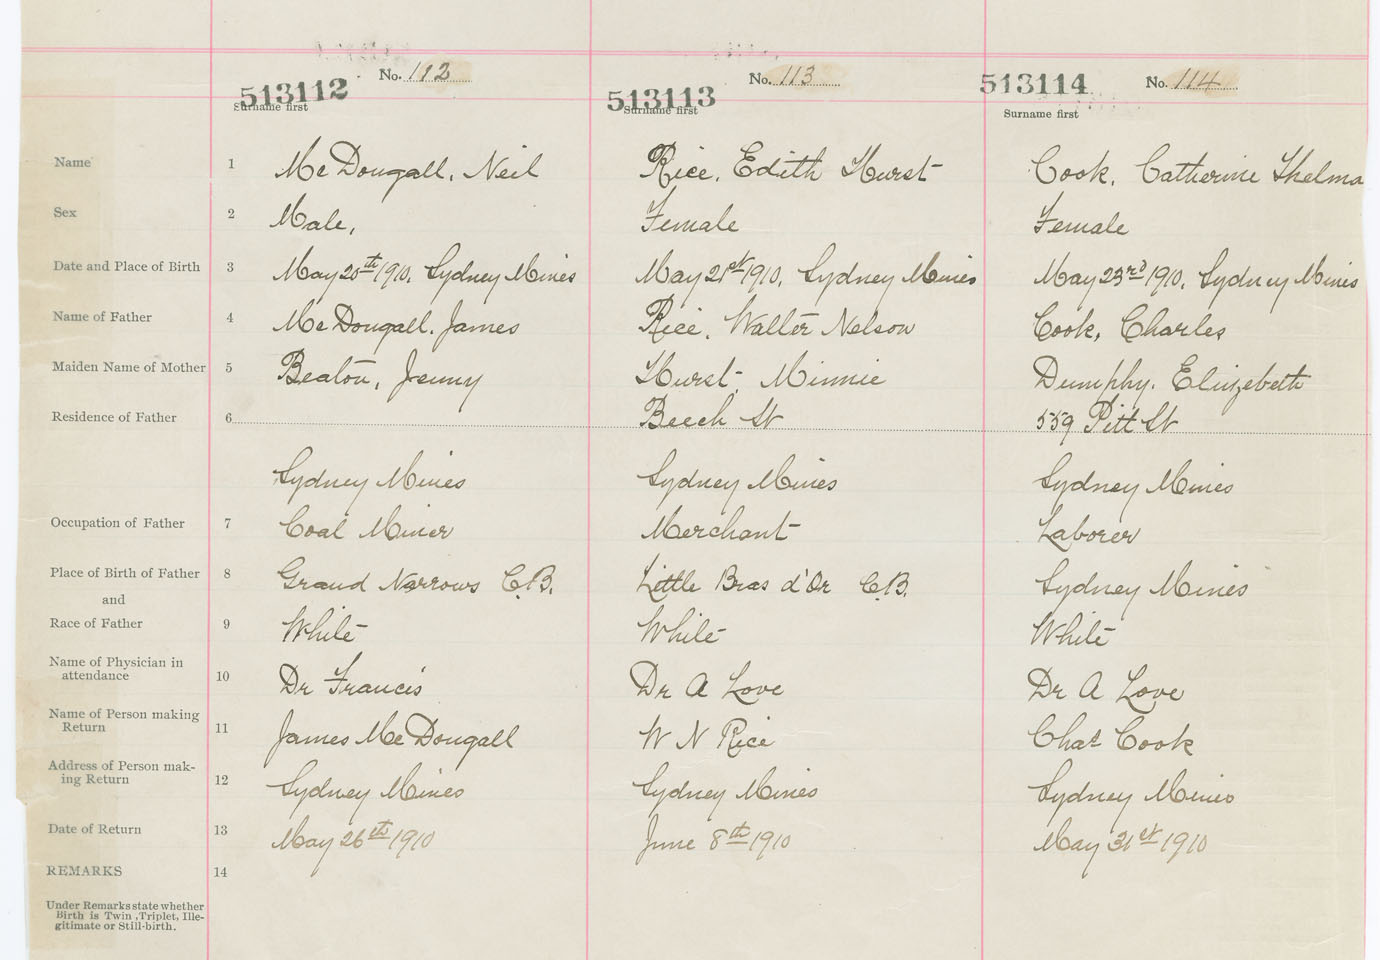 No. 112 No. 113 No. 114
513112 513113 513114
Surname first Surname first Surname first
Name 1 McDougall, Neil Rice, Edith Hurst Cook, Catherine Thelma
Sex 2 Male, Female Female
Date and Place of Birth 3 May 20th 1910, Sydney Mines May 21st 1910, Sydney Mines May 23rd 1910, Sydney Mines
Name of Father 4 McDougall, James Rice, Walter Nelson Cook, Charles
Maiden Name of Mother 5 Beaton, Jenny Hurst, Minnie Dumphy, Elizebeth
Residence of Father 6 Beech St 559 Pitt St
Sydney Mines Sydney Mines Sydney Mines
Occupation of Father 7 Coal Miner Merchant Laborer
Place of Birth of Father 8 Grand Narrows C.B. Little Bras d'Or C.B. Sydney Mines
and
Race of Father 9 White White White
Name of Physician in
attendance 10 Dr Francis Dr A Love Dr A Love
Name of Person making
Return 11 James McDougall W N Rice Chas Cook
Address of Person mak-
ing Return 12 Sydney Mines Sydney Mines Sydney Mines
Date of Return 13 May 26th 1910 June 8th 1910 May 31st 1910
REMARKS 14
Under Remarks state whether
Birth is Twin, Triplet, Ille-
gitimate or Still-birth.